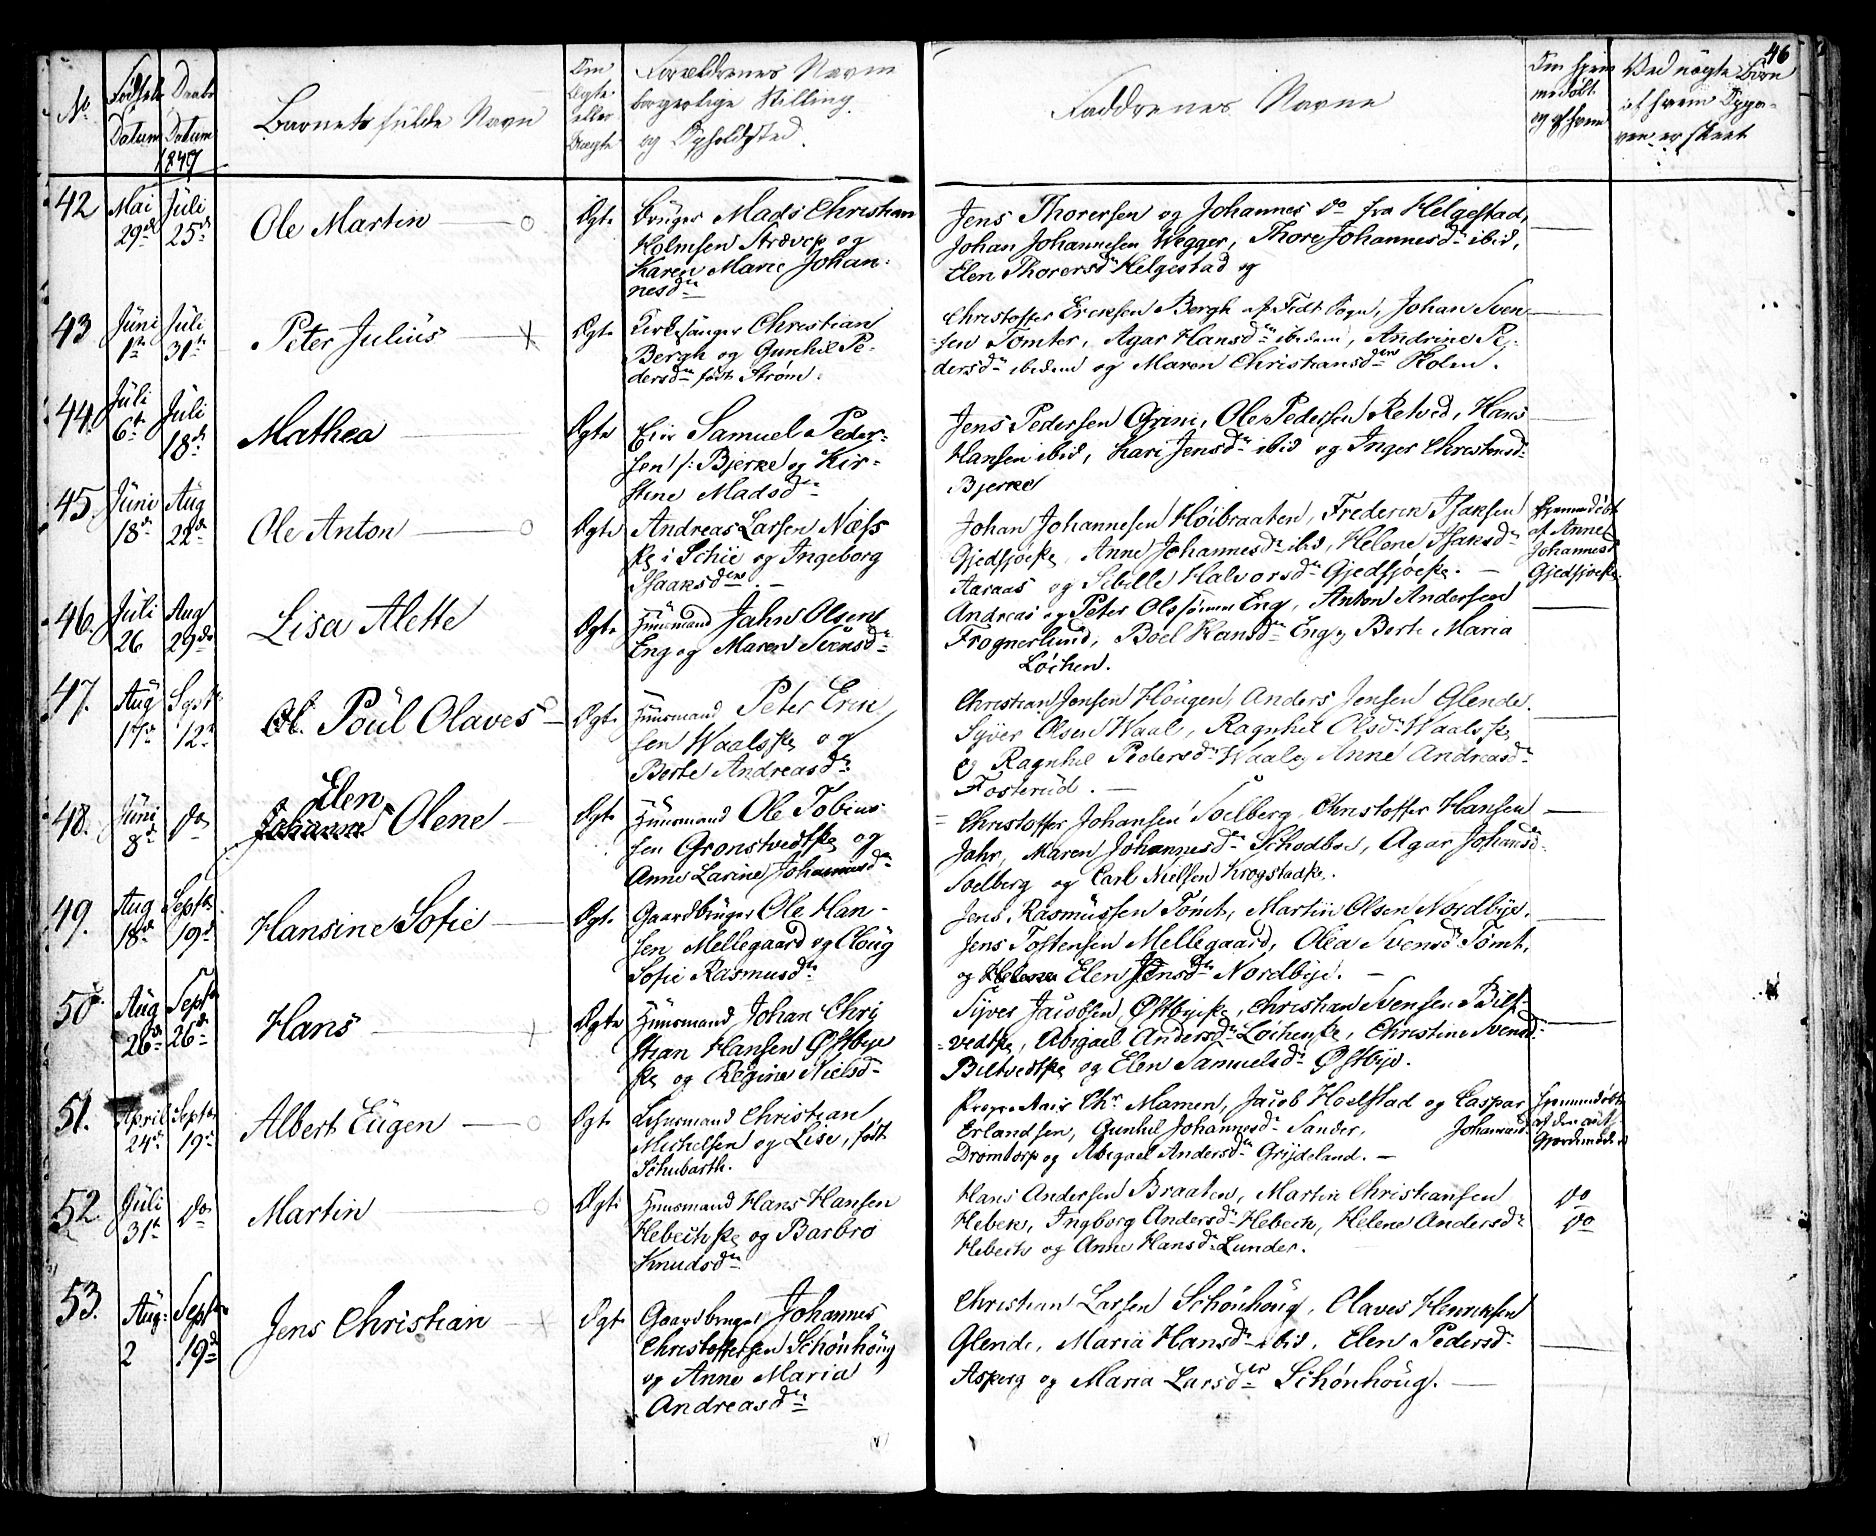 46
No.
Fødsels Datum
Daabs Datum 1847
Barnets fulde Navn
Om Ægte eller Uægte
Forældrenes Navne
borgerlige Stilling
og Opholdsted.
Faddrenes Navne
Om hjemmedøbt
og af hvem
Ved uægte Børn
af hvem Opga-
ven er skeet
42 Mai 29de Juli 25de Ole Martin Ægte
Bruger Mads Christian
Holmsen Strøvsp og
Karen Marie Johan-
nesdr
Jens Thorersen og Johannes do fra Helgestad,
Johan Johannesen Wegger, Thore Johannesdr ibid,
Elen Thorersdr Helgestad og
43 Juni 1te Juli 31te Peter Julius Ægte
Kirkesanger Christian
Bergh og Gunhil Pe-
dersdr født Strøm.
Christoffer Ericksen Bergh af Fedt Sogn, Johan Sven-
sen Tomter, Agar Hansdr ibidem, Andrine Pe-
dersdr ibidem og Maren Christiansdr Holen.
44. Juli 6te Juli 18de Mathea Ægte
Eier Samuel Peder-
sen /: Bjerke og Kir-
stine Madsdr
Jens Pedersen Grini, Ole Pedersen Retvid, Hans
Hansen ibid, Kari Jensdr ibid og Inger Christensdr
Bjerke
45. Juni 18de Aug 22de Ole Anton Ægte
Andreas Larsen Næss
i Schie og Ingeborg
Isaaksdr
Johan Johannesen Høibraaten, Frederik Isaksen
Gjedsjøe, Anne Johannesdr ibid, Helene Isaksdr
Aaraas og Sibille Halvorsdr Gjedsjøe.
Hjemmedøbt
af Anne
Johannesdr
Gjedsjøe
46. Juli 26 Aug 29de Lisa Alette Ægte
Huusmand Jahn Olsen
Eng og Maren Svensdr
Andreas og Peter Olssønner Eng, Anton Andersen
Frognerlund, Boel Hansdr Eng og Berte Maria
Løchen.
47. Aug 17de Sept 12te Ol. Poul Olaves Ægte
Huusmand Peter Erik
sen Waals og
Berte Andreasdr
Christian Jensen Hougen, Anders Jensen Glende.
Syver Olsen Waal, Ragnhil Olsdr Waals
og Ragnhil Pedersdr Waal og Anne Andreasdr
Fosterud.
48. Juni 8de do Elen Johanna Olene Ægte
Huusmand Ole Tobias
sen Gronstvedt og
Anne Larine Johannesdr
Christoffer Johansen Soelberg, Christoffer Hansen
Jahr, Maren Johannesdr Schodbo, Agar Johansdr
Soelberg og Carl Nielsen Krogstad.
49. Aug 18de Septbr 19de Hansine Sofie Ægte
Gaardbruger Ole Han-
sen Mellegaard og Oloug
Sofie Rasmusdr
Jens Rasmussen Tømt, Martin Olsen Nordbye.
Jens Tostensen Mellegaard, Olea Svensdr Tømt,
og Helene Elen Jensdr Nordbye.
50 Aug 26de Septbr 26de Hans Ægte
Huusmand Johan Chri
stian Hansen Østbye
og Regine Nielsdr
Syver Jacobsen Østbye, Christian Svensen Bilt-
vedt, Abigael Andersdr Løchen, Christine Svensdr
Biltvedt og Elen Samuelsdr Østbye.
51. April 24de Septbr 19de Albert Eugen Ægte
Christian
Michelsen og Lise, født
Schubarth.
Chr Mamen, Jacob Hoelstad og Caspar
Erlandsen, Gunhil Johannesdr Sander, Johannesdr
Drømtorp og Abigael Andersdr Grydeland.
Hjemmedøbt
af den
52 Juli 31te do Martin Ægte
Huusmand Hans Hansen
Hebeck og Barbro
Knudsdr
Hans Andersen Braaten, Martin Christiansen
Hebek, Ingborg Andersdr Hebeck, Helene Andersdr
Hebeck og Anne Hansdr Lunder.
do
do
53. Aug: 2 Septbr 19de Jens Christian Ægte
Gaardbruger Johannes
Christoffersen Schønhoug
og Anne Maria
Andreasdr
Christian Larsen Schønhoug, Olaves Henriksen
Glende, Maria Hansdr ibid, Elen Pedersdr
Asperg og Maria Larsdr Schønhoug.